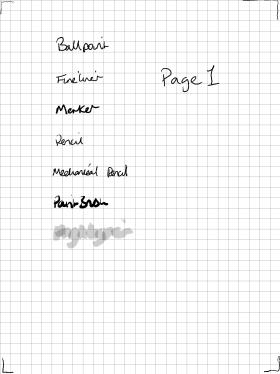 Ballpoint
Fineliner
Page 1
Marker
Pencil
Mechanical Pencil
PaintBrush
Highlighter